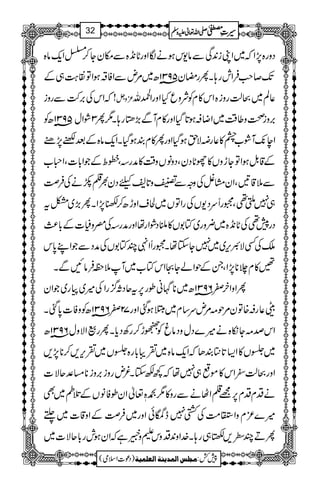 سیرتِ مصطفی صلی اللہ تعالیٰ علیہ وسلم 32
دورہ پڑا کہ میں اپنی زندگی سے مایوس ہونے لگا اور ٹانڈہ سے مکان جا کر مسلسل ایک ماہ
تک صاحب فراش رہا۔ پھر رمضان ۱۳۹۵ھ میں مرض سے افاقہ ہوا تو نقاہت ہی کے
عالم میں بحالت روزہ اس کام کو شروع کیا اور الحمدللہ عزوجل! کہ اس کی برکت سے روز بروز
صحت و طاقت میں اضافہ ہوتا گیا اور کام آگے بڑھتا رہا۔ پھر ۳ شوال ۱۳۹۵ھ کو
اچانک آشوب چشم کا عارضہ لاحق ہو گیا اور پھر کام بند ہو گیا۔ ایک ماہ کے بعد لکھنے پڑھنے
کے قابل ہوا تو جاڑوں کا چھوٹا دن، دونوں وقت مدرسہ کا کام، خطوط کے جوابات، احباب
سے ملاقاتیں، ان مشاغل کی وجہ سے تصنیف و تالیف کیلئے دن بھر قلم پکڑنے کی فرصت
ہی نہیں ملتی تھی۔ مجبوراً، سردیوں کی راتوں میں لحاف اوڑھ کر لکھنا پڑا۔ پھر بڑی مشکل یہ
درپیش تھی کہ ٹانڈہ میں ضروری کتابوں کا ملنا دشوار تھا اور مدرسہ کی مصروفیات کے باعث
کسی ملک کی لائبریری میں نہیں جا سکتا تھا۔ مجبوراً، انہی چند کتابوں کی مدد سے جو اپنے پاس
تھیں کام چلانا پڑا جن کے حوالے جابجا اس کتاب میں آپ ملاحظہ فرمائیں گے۔
پھر اواخر صفر ۱۳۹۶ھ میں ناگہاں یہ سانحہ ہوش ربا گزرا کہ میری پیاری جوان
بیٹی عارفہ خاتون مرحومہ مرض سرسام میں مبتلا ہو گئی اور ۲۷ صفر ۱۳۹۶ھ کو وفات پا گئی۔
اس صدمہ جانکاہ نے میرے دل و دماغ کو جھنجھوڑ کر رکھ دیا۔ پھر ربیع الاول ۱۳۹۶ھ
میں جلسوں کا ایسا تانتا بندھا کہ ایک ماہ میں تقریباً بارہ جلسوں میں تقریریں کرنا پڑیں
اور بحالت سفر اس کام کا موقع ہی نہیں تھا کہ کچھ لکھ سکتا۔ غرض روز بروز نامساعد حالات
نے قدم قدم پر مجھے قلم اٹھانے سے روکا مگر بحمدہ تعالیٰ ان طوفانوں کے تلاطم میں بھی
میرے عزم و استقامت کی کشتی نہیں ڈگمگائی اور میں فرصت کے اوقات میں چلتے
پھرتے چند سطریں لکھتا ہی رہا۔ خداوند قدوس علیم و خبیر ہے کہ ان ہوش ربا حالات میں
پیش کش: مجلس المدینۃ العلمیۃ (دعوتِ اسلامی)